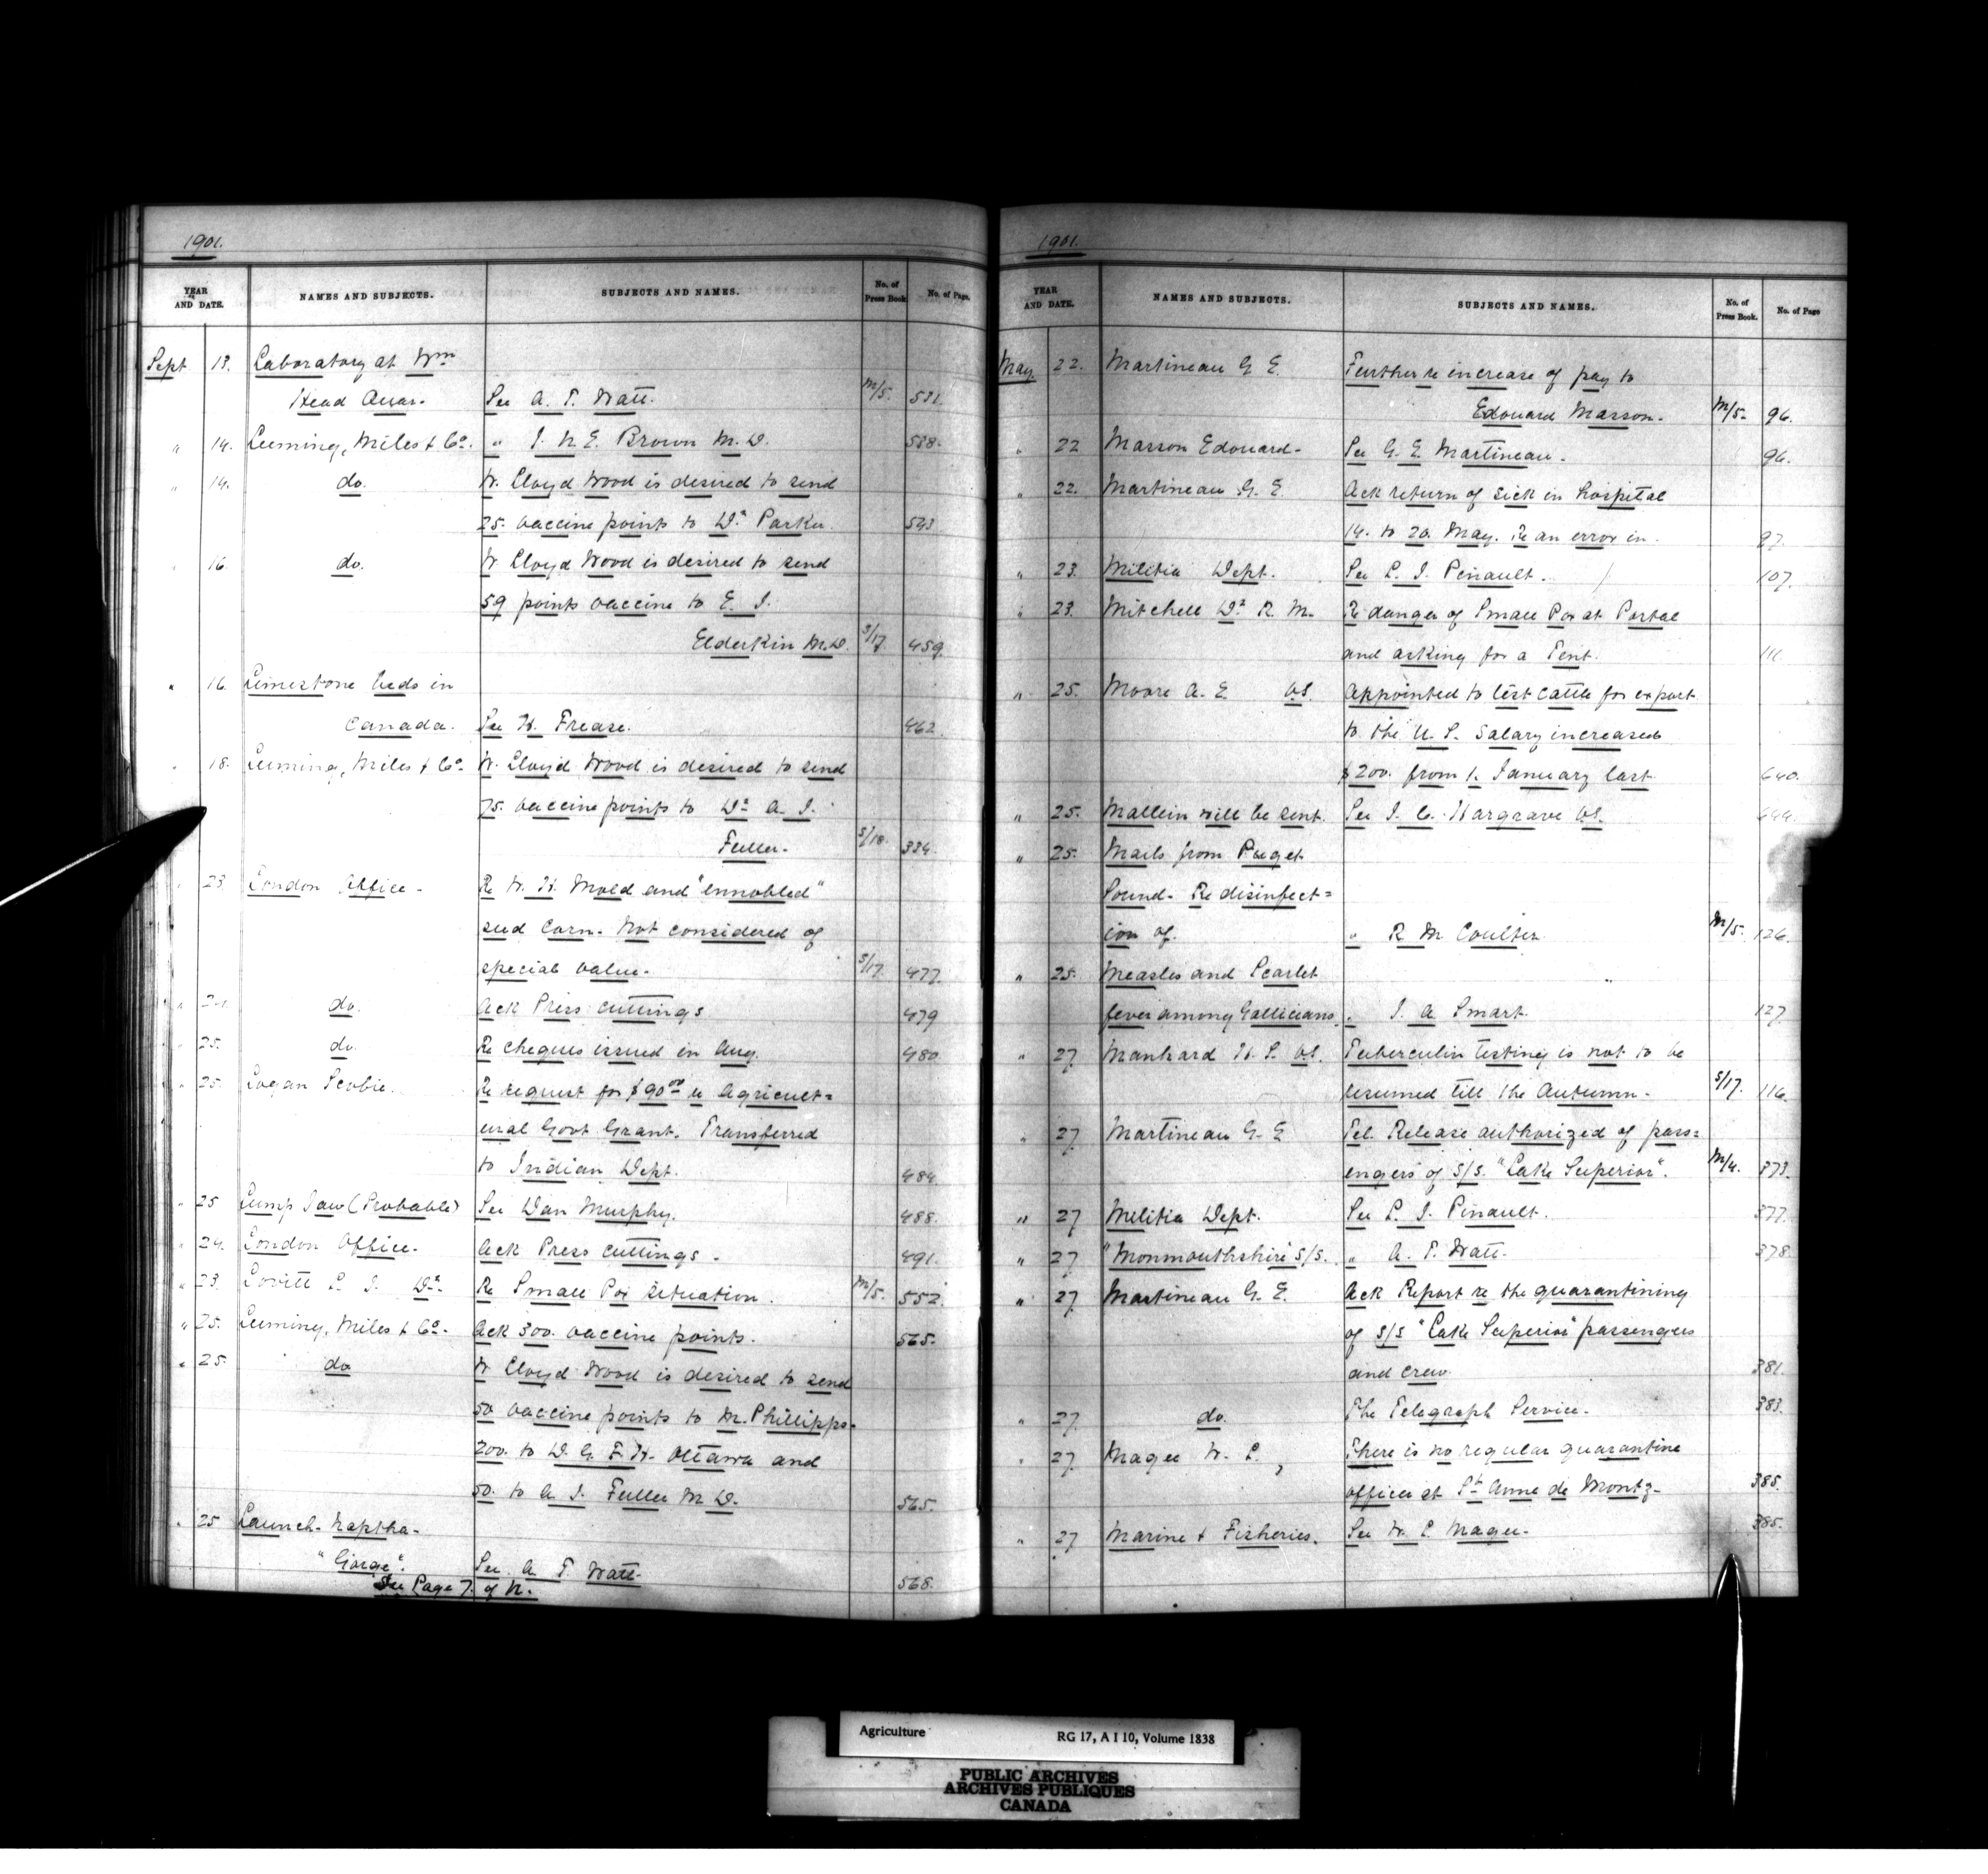 1901.
YEAR AND DATE. NAMES AND SUBJECTS. SUBJECTS AND NAMES. No. of Press Book No. of Page.
Sept 13. Laboratory at Wm
Head Quar. See A. T. Watt. M/5. 531.
" 14. Leeming, Miles & Co. " J. N. E. Brown M.D. 538.
" 14. do. W. Lloyd Wood is desired to send
25. vaccine points to Dr Parker. 543
" 16. do. W. Lloyd Wood is desired to send
59 points vaccine to E. J.
Elderkin M.D. S/17 459.
" 16. Limestone beds in
Canada. See H. Frease. 462
" 18. Leeming, Miles & Co. W. Lloyd Wood is desired to send
75. vaccine points to Dr A. J.
Fuller. S/18 334.
" 23. London Office - Re W. H. Mold and "ennobled"
seed corn. Not considered of
special value. S/17 477.
" 24. do. Ack Press cuttings 479
" 25. do. Re cheques issued in Aug. 480
" 25. Logan Scobie. Re request for $90.00 re Agricult=
ural Govt Grant. Transferred
to Indian Dept. 484.
" 25 Lump Jaw (Probable) See Dan Murphy. 488.
" 24. London Office. Ack Press cuttings. 491.
" 23. Lovitt L. J. Dr. Re Small Pox situation. M/5. 552.
" 25. Leeming, Miles & Co. Ack 300. vaccine points. 565.
" 25. do W. Lloyd Wood is desired to send
50 vaccine points to M. Phillipps.
200. to D. G. F. H. Ottawa and
50. to A. J. Fuller M.D. 565.
" 25 Launch. Naptha.
" Gorge". See A T Watt 568.
See Page 7. of N.
1901.
YEAR AND DATE. NAMES AND SUBJECTS. SUBJECTS AND NAMES. No. of Press Book. No. of Page
May 22. Martineau G E. Further re increase of pay to
Edouard Masson. M/5. 96.
" 22 Masson Edouard - See G. E. Martineau. 96.
" 22. Martineau G. E. Ack return of sick in hospital
14. to 20. May. Re an error in. 97.
" 23. Militia Dept. See L. J. Pinault. 107.
" 23. Mitchell Dr R. M. Re danger of Small Pox at Portal
and asking for a Tent. 111.
" 25. Moore A. E. VS. Appointed to test cattle for export
to the U. S. Salary increased
$200. from 1. January last 640.
" 25. Mallein will be sent. See J. C. Hargrave VS. 644.
" 25. Mails from Puget
Sound. Re disinfect=
ion of. " R M Coulter. M/5. 126.
" 25. Measles and Scarlet
fever among Gallicians. " J. A Smart. 127.
" 27 Manhard W. S. VS. Tuberculin testing is not to be
resumed till the Autumn. S/17. 116.
" 27 Martineau G. E Tel. Release authorized of pass=
engers of S/S. "Lake Superior". M/4. 373.
" 27 Militia Dept. See L. J. Pinault. 377.
" 27 "Monmouthshire S/S. " A. T. Watt. 378.
" 27 Martineau G. E. Ack Report re the quarantining
of S/S "Lake Superior" passengers
and crew. 381.
" 27. do. The Telegraph Service. 383.
" 27. Magee W. P., There is no regular quarantine
officer at St Anne de Montz. 385.
" 27 Marine & Fisheries. See W. P. Magee. 385.
Agriculture RG 17, A I 10, Volume 1838
PUBLIC ARCHIVES
ARCHIVES PUBLIQUES
CANADA